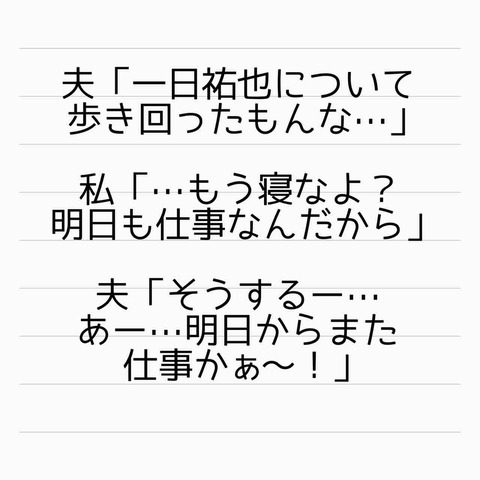 夫「一日祐也について
歩き回ったもんな…」
私「…もう寝なよ？
明日も仕事なんだから」
夫「そうするー…
あー…明日からまた
仕事かぁ〜！」